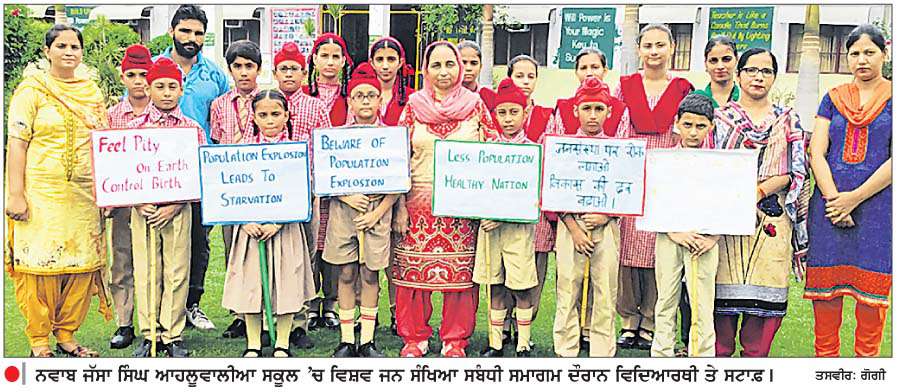 Will Power is
Your Magic
Key to
Teacher is Like a
Candle That Burns
Feel Pity
On Earth
Control Birth
Population Explosion
Leads To
Starvation
Beware of
Population
Explosion
Less Population
Healthy Nation
जनसंख्या पर रोक
लगाओ
विकास की दर
बढाओ।
ਨਵਾਬ ਜੱਸਾ ਸਿੰਘ ਆਹਲੂਵਾਲੀਆ ਸਕੂਲ ’ਚ ਵਿਸ਼ਵ ਜਨ ਸੰਖਿਆ ਸਬੰਧੀ ਸਮਾਗਮ ਦੌਰਾਨ ਵਿਦਿਆਰਥੀ ਤੇ ਸਟਾਫ਼।
ਤਸਵੀਰ: ਗੋਗੀ